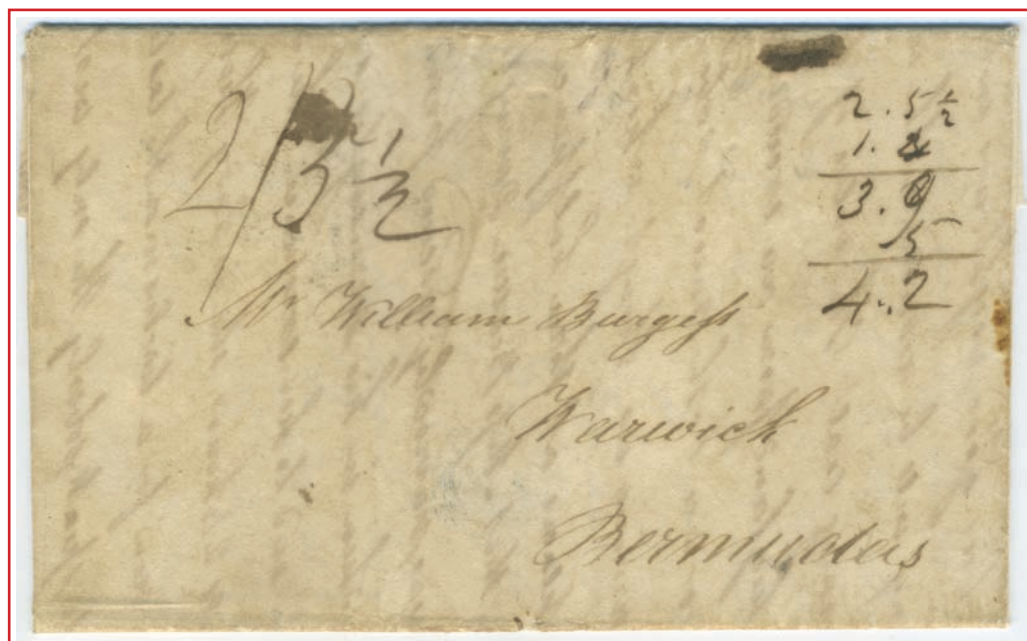 2/5½
2.5½
1.4
3.9
5
4.2
Mr William Burgess
Warwick
Bermudas